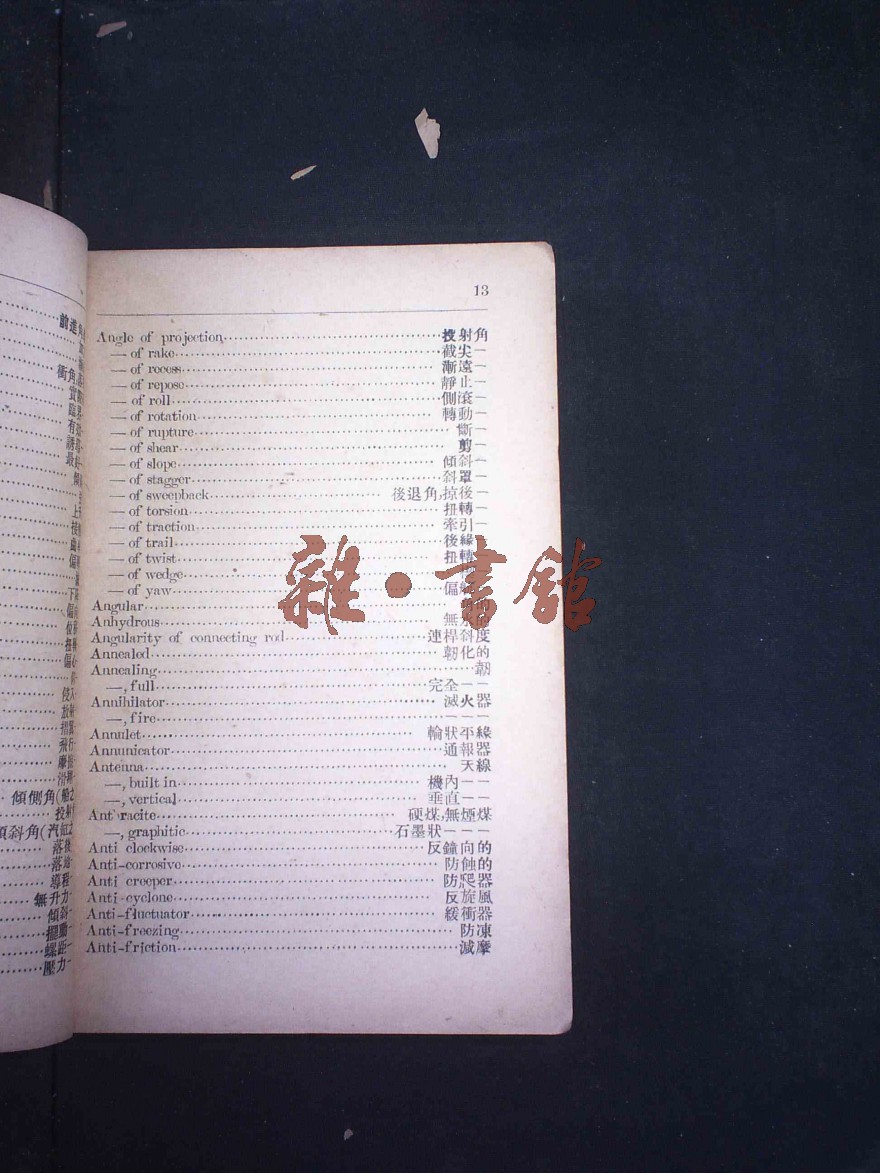 前進角
衝角
上
接
曲
偏
下
偏
位
扭
偏心
侵入
放射
摺翼
飛行
摩擦
滑
傾側角(
投射
傾斜角(汽缸之
落後
落地
導程
無升力
傾斜
擺動
螺距
壓力
13
Angle of projection 投射角
— of rake 截尖—
— of recess 漸遠—
— of repose 靜止—
— of roll 側滾—
— of rotation 轉動—
— of rupture 斷—
— of shear 剪—
— of slope 傾斜—
— of stagger 斜罩—
— of sweepback 後退角,掠後—
— of torsion 扭轉—
— of traction 牽引—
— of trail 後緣—
— of twist 扭轉
— of wedge
— of yaw 偏
Angular 的
Anhydrous 無水的
Angularity of connecting rod 連桿斜度
Annealed 韌化的
Annealing 韌
—, full 完全——
Annihilator 滅火器
—, fire ————
Annulet 輪狀平緣
Annunicator 通報器
Antenna 天線
—, built in 機內——
—, vertical 垂直——
Ant racite 硬煤,無煙煤
—, graphitic 石墨狀———
Anti clockwise 反鐘向的
Anti-corrosive 防蝕的
Anti creeper 防爬器
Anti-cyclone 反旋風
Anti-fluctuator 緩衝器
Anti-freezing 防凍
Anti-friction 減摩
雜·書館